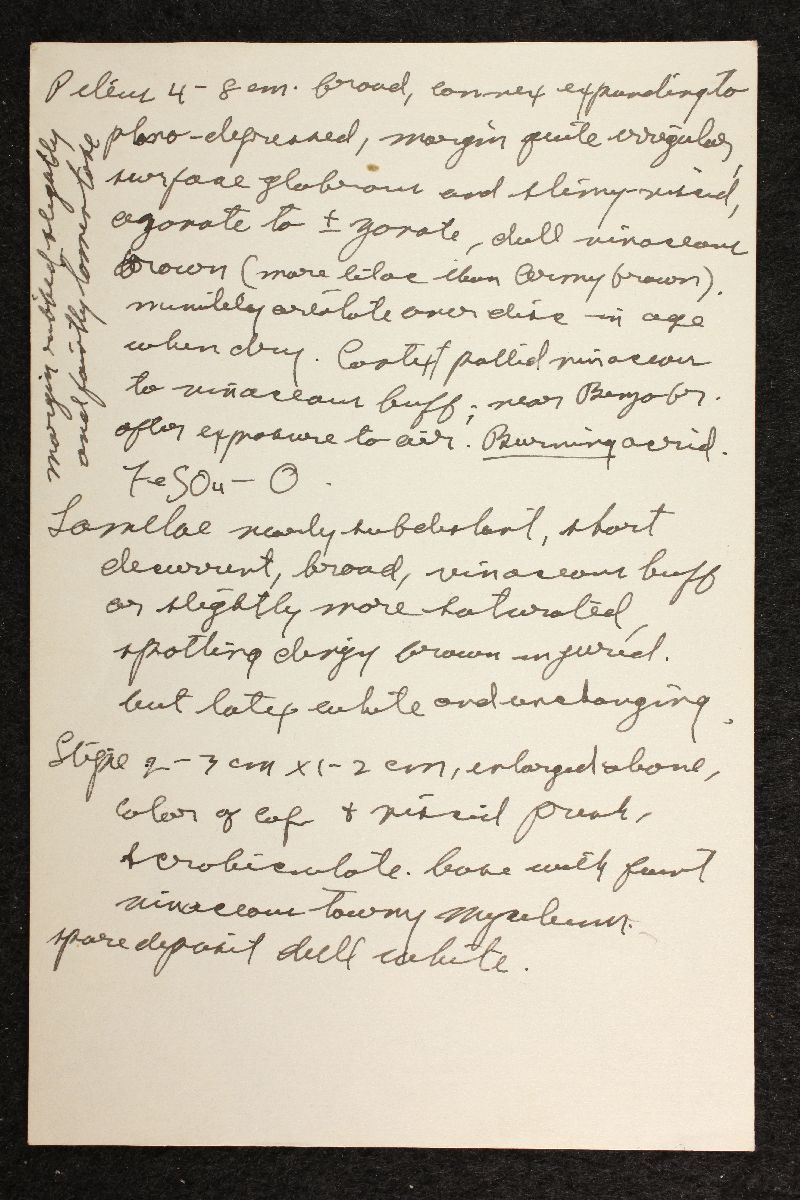 Pileus 4-8 cm. broad, convex expanding to
plano-depressed, margin quite irregular,
surface glabrous and slimy-viscid,
azonate to ± zonate, dull vinaceous
brown (more lilac than Army brown).
minutely areolate over disc in age
when dry. Context pallid vinaceous
to vinaceous buff; near Benzo br.
after exposure to air. Burning acrid.
FeSO4 - O.
margin ribbed slightly
and faintly tomentose
Lamellae nearly subdistant, short
decurrent, broad, vinaceous buff
or slightly more saturated,
spotting dingy brown injured.
but latex white and unchanging.
Stipe 2-3 cm x 1-2 cm, enlarged above,
color of cap + viscid fresh,
scrobiculate. base with faint
vinaceous tawny mycelium.
spore deposit dull white.